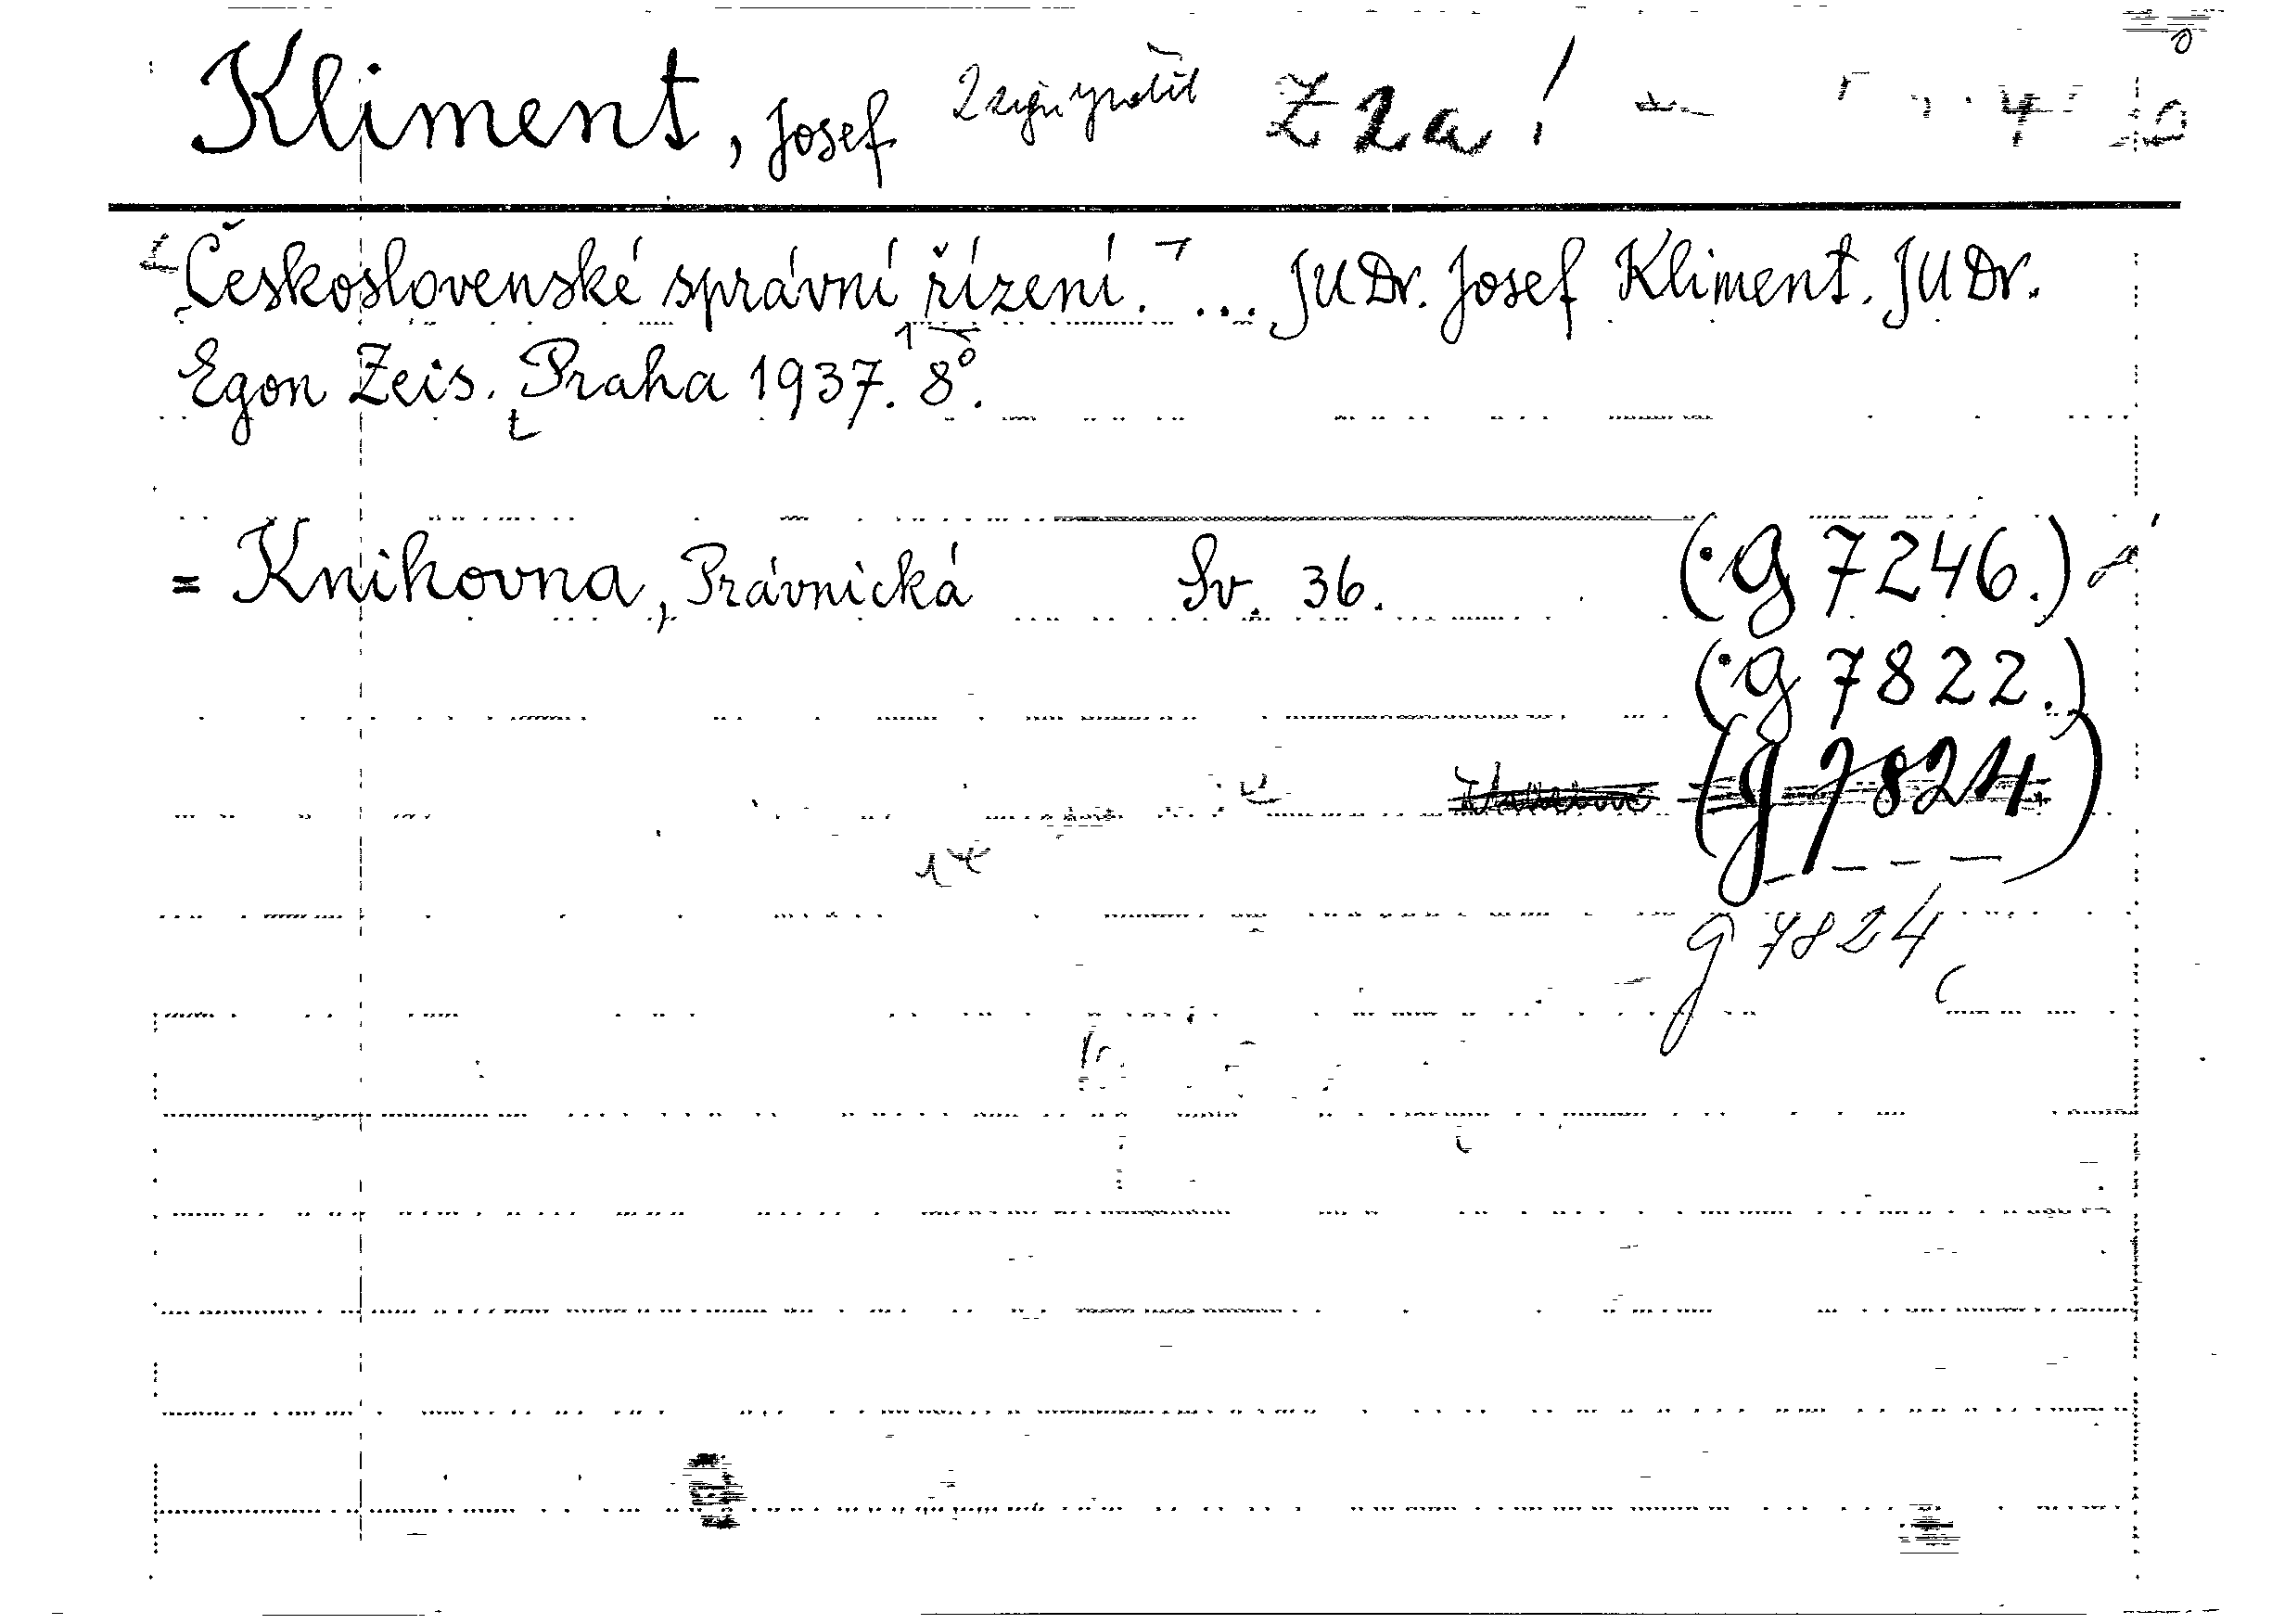 Kliment, Josef Z 2a!
Československé správní řízení. ... JUDr. Josef Kliment. JUDr.
Egon Zeis. Praha 1937. 8°.
= Knihovna, Právnická Sv. 36. (·g 7246.)
(·g 7822.)
(g 7824)
g 7824